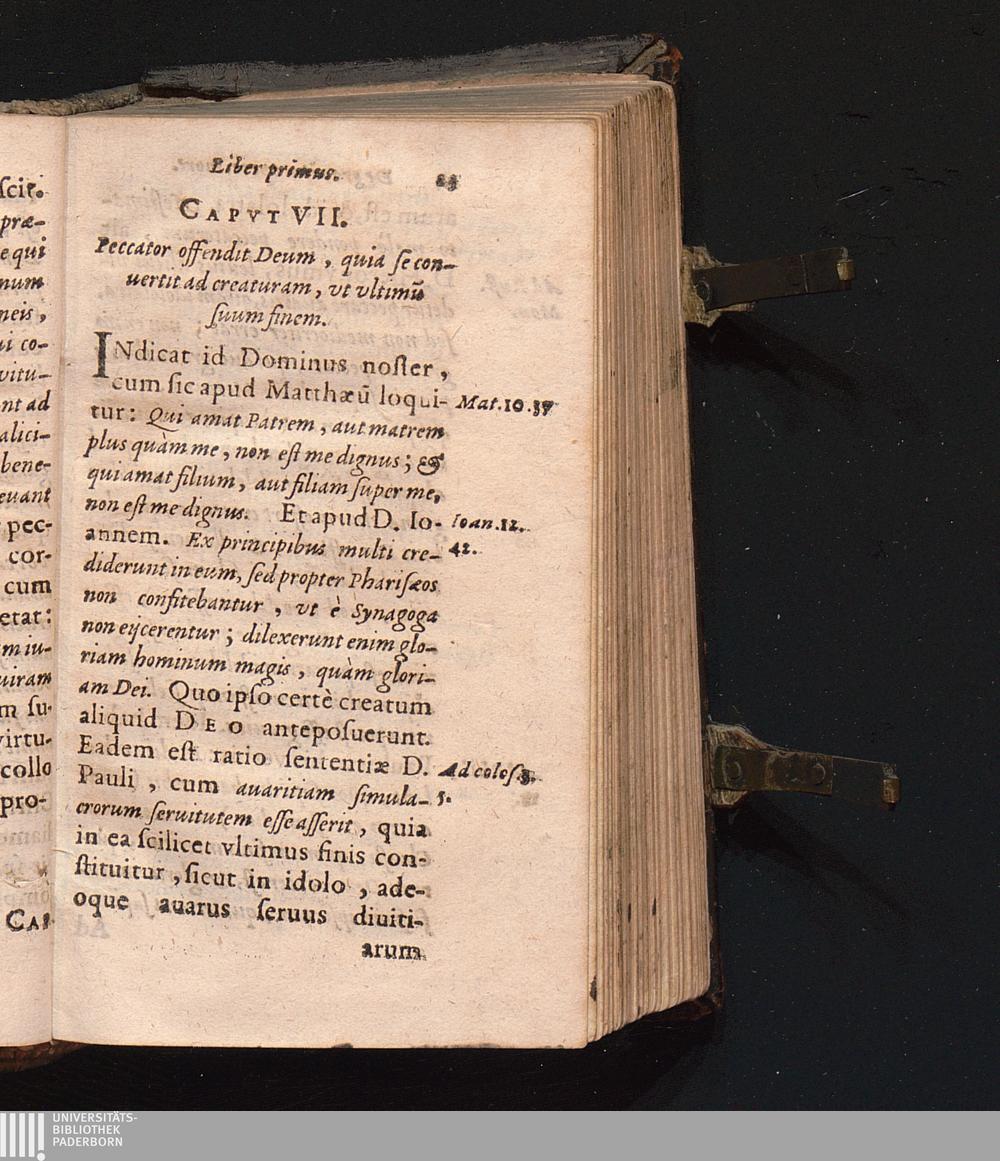 ſcit.
præ-
e qui
num
neis,
ui co-
vitu-
nt ad
alici-
bene-
euant
pec-
cor-
cum
etat:
m iu-
uiram
m ſu-
virtu-
collo
pro-
CAP
Liber primus.
CAPVT VII.
Peccator offendit Deum, quia ſe con-
uertit ad creaturam, vt vltimū
ſuum finem.
INdicat id Dominus noſter,
cum ſic apud Matthæū loqui-
Mat. 10. 37
tur: Qui amat Patrem, aut matrem
plus quàm me, non eſt me dignus; &
qui amat filium, aut filiam ſuper me,
non eſt me dignus. Et apud D. Io-
Ioan. 12.
annem. Ex principibus multi cre-
42.
diderunt in eum, ſed propter Phariſæos
non confitebantur, vt è Synagoga
non eijcerentur; dilexerunt enim glo-
riam hominum magis, quàm glori-
am Dei. Quo ipſo certè creatum
aliquid DEO antepoſuerunt.
Eadem eſt ratio ſententiæ D.
Ad coloſ. 3.
Pauli, cum auaritiam ſimula-
5.
crorum ſeruitutem eſſe aſſerit, quia
in ea ſcilicet vltimus finis con-
ſtituitur, ſicut in idolo, ade-
oque auarus ſeruus diuiti-
arum
UNIVERSITÄTS-
BIBLIOTHEK
PADERBORN